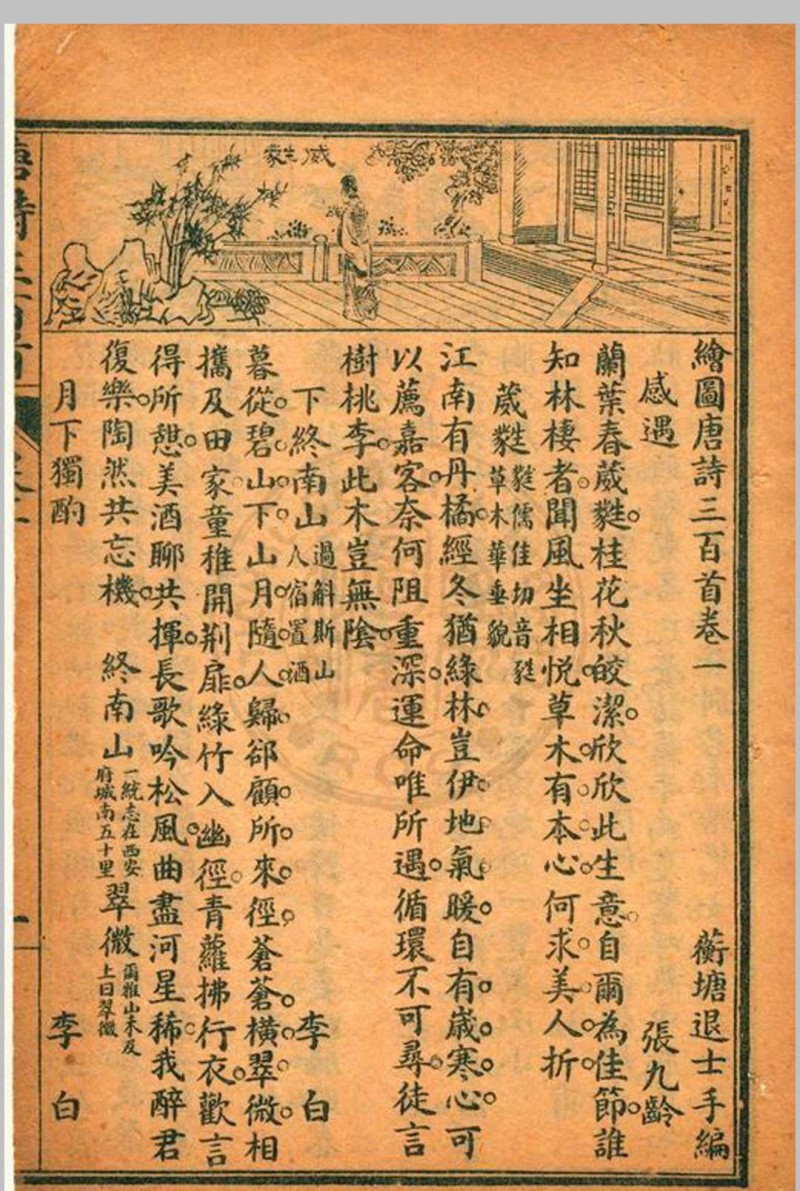 葳蕤
繪圖唐詩三百首卷一 蘅塘退士手編
感遇 張九齡
蘭葉春葳蕤桂花秋皎潔欣欣此生意自爾為佳節誰
知林棲者聞風坐相悅草木有本心何求美人折
葳蕤 蕤儒佳切音甤
草木華垂貌
江南有丹橘經冬猶綠林豈伊地氣暖自有歲寒心可
以薦嘉客奈何阻重深運命唯所遇循環不可尋徒言
樹桃李此木豈無陰
下終南山 過斛斯山
人宿置酒 李白
暮從碧山下山月隨人歸卻顧所來徑蒼蒼橫翠微相
攜及田家童稚開荆扉綠竹入幽徑青蘿拂行衣歡言
得所憩美酒聊共揮長歌吟松風曲盡河星稀我醉君
復樂陶然共忘機 終南山 一統志在西安
府城南五十里 翠微 爾雅山未及
上曰翠微
月下獨酌 李白